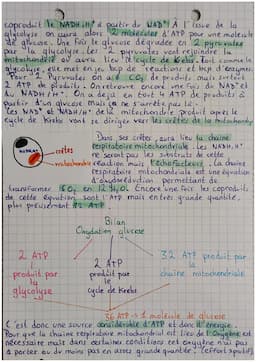 coproduit le NADH,H⁺ à partir du NAD⁺. À l'issue de la
glycolyse on aura alors 2 molécules d'ATP pour une molécule
de glucose. Une fois le glucose dégradée en 2 pyruvates
par la glycolyse. Les 2 pyruvates vont rejoindre la
mitochondrie où aura lieu le cycle de Krebs. Tout comme la
glycolyse, elle met en jeu bcp de réactions et bcp d'enzymes
Pour 2 Pyruvates on a 6 CO₂ de produits mais surtout
2 ATP de produits. On retrouve encore une fois du NAD⁺ et
du NADH,H⁺. On a déjà en tout 4 ATP de produits à
partir d'un glucose mais ça ne s'arrête pas là.
Les NAD⁺ et NADH/H⁺ de la mitochondrie produit après le
cycle de Krebs vont se diriger vers les crêtes de la mitochondrie
crêtes
mitochondrie
Dans ses crêtes, aura lieu la chaîne
respiratoire mitochondriale. Les NADH,H⁺
ne seront pas les substrats de cette
réaction mais l'échafaudeurs. La chaîne
respiratoire mitochondriale est une équation
d'oxydoréduction permettant de
transformer 6 O₂ en 12 H₂O. Encore une fois les coproduits
de cette équation sont l'ATP mais entrés grande quantité,
plus précisément 32 ATP.
Bilan
Oxydation glucose
2 ATP
produit par
la
glycolyse
2 ATP
produit par
le
cycle de Krebs
32 ATP produit par
la
chaîne mitochondriale
36 ATP → 1 molécule de glucose
C'est donc une source considérable d'ATP et donc d'énergie.
Pour que la chaîne respiratoire mitochondrial est lieu de l'oxygène est
nécessaire mais dans certaines conditions cet oxygène n'ai pas
se porter ou du moins pas en assez grande quantité. (effort sportif)